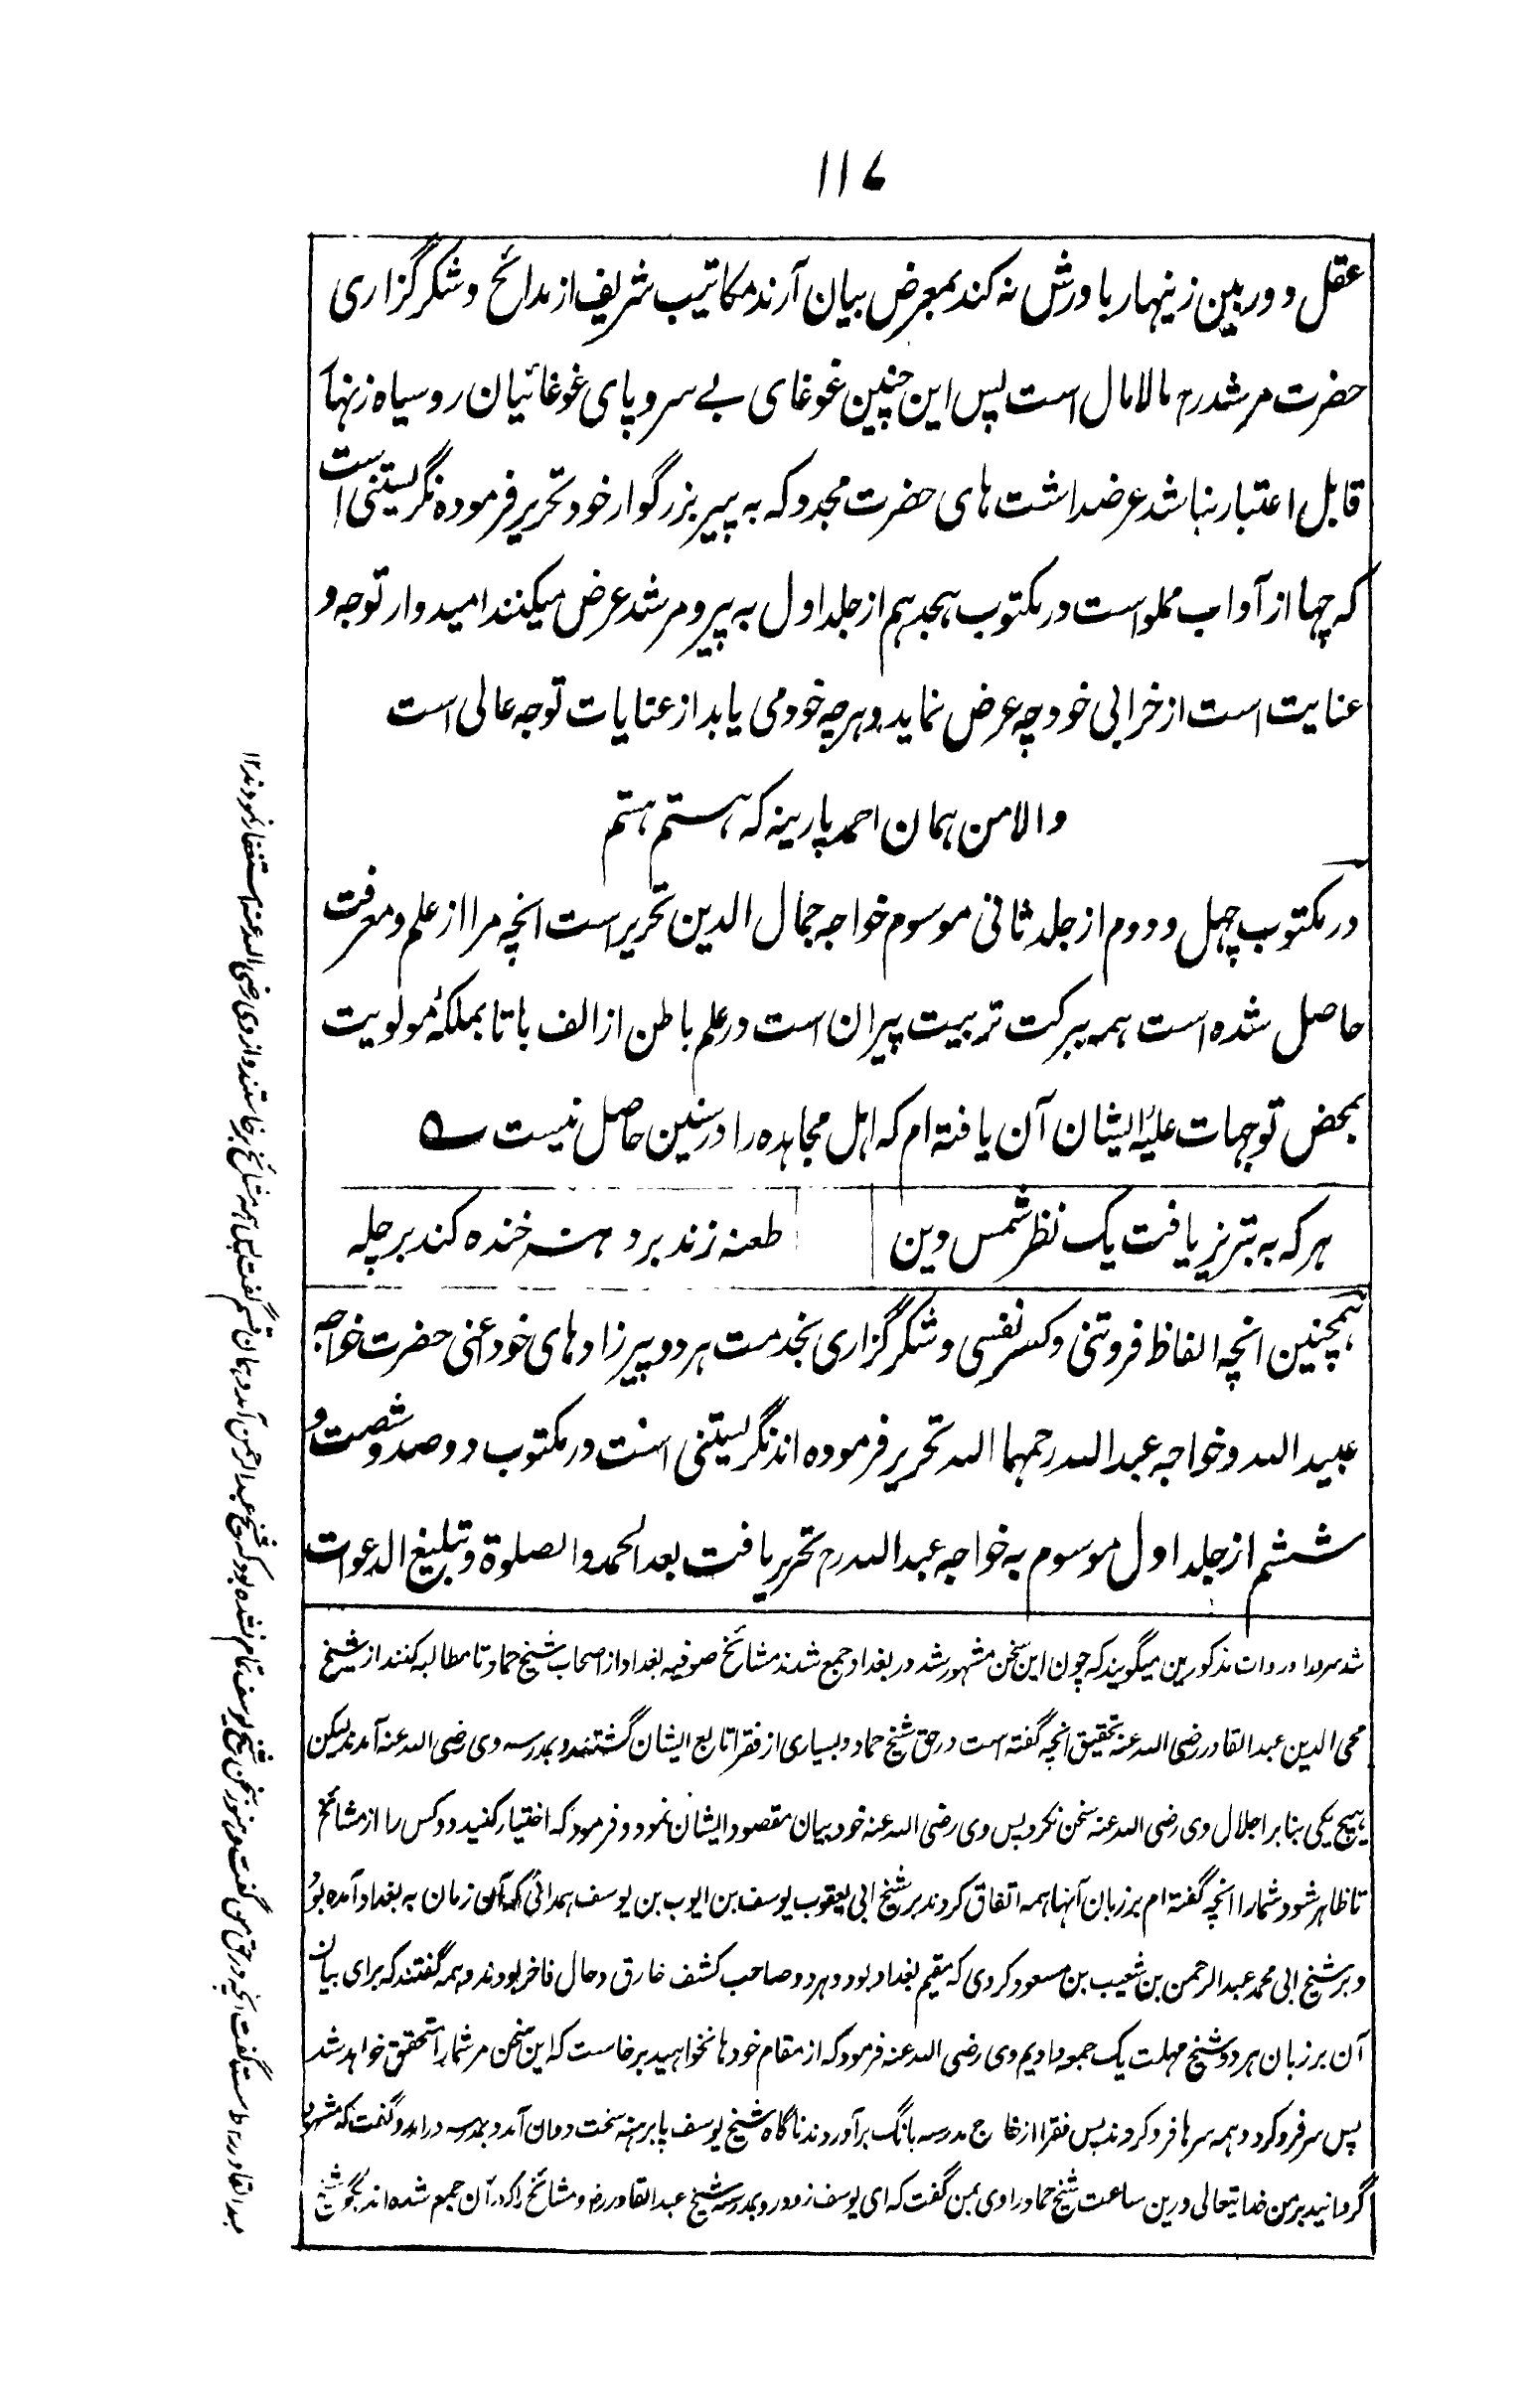 ۱۱۷
عقل دوربین زینهار باورش نه کند بمعرض بیان آرند مکاتیب شریف از مدائح و شکرگزاری
حضرت مرشد رح مالامال است پس این چنین غوغای بے سر و پای غوغائیان روسیاه زنهار
قابل اعتبار نباشد عرضداشت های حضرت مجدد که به پیر بزرگوار خود تحریر فرموده نگریستنی است
که چها از آداب مملو است در مکتوب هیجدهم از جلد اول به پیر و مرشد عرض میکنند امیدوار توجه و
عنایت است از خرابی خود چه عرض نماید و هرچه خود می یابد از عنایات توجه عالی است
والا من همان احمد پارینه که هستم هستم
در مکتوب چهل و دوم از جلد ثانی موسوم خواجه جمال الدین تحریر است انچه مرا از علم و معرفت
حاصل شده است همه ببرکت تربیت پیران است در علم باطن از الف با تا بملکهٔ مولویت
بمحض توجهات علیهٔ ایشان آن یافته ام که اهل مجاهده را در سنین حاصل نیست ؎
هر که به تبریز یافت یک نظر شمس دین طعنه زند بر دهه خنده کند بر چله
همچنین انچه الفاظ فروتنی و کسر نفسی و شکرگزاری بخدمت هر دو پیرزادهای خود اعنی حضرت خواجه
عبید الله و خواجه عبد الله رحمهما الله تحریر فرموده اند نگریستنی است در مکتوب دو صد و شصت و
ششم از جلد اول موسوم به خواجه عبد الله رح تحریر یافت بعد الحمد والصلوة و تبلیغ الدعوات
مذکورین میگویند که چون این سخن مشهور شد در بغداد جمع شدند مشائخ صوفیه بغداد از اصحاب شیخ حماد تا مطالبه کنند از شیخ
محی الدین عبد القادر رضی الله عنه تحقیق انچه گفته است در حق شیخ حماد و بسیاری از فقرا تابع ایشان گشتند و بمدرسه وی رضی الله عنه آمدند لیکن
هیچ یکی بنا بر اجلال وی رضی الله عنه سخن نکرد پس وی رضی الله عنه خود بیان مقصود ایشان نمود و فرمود که اختیار کنید دو کس را از مشائخ
تا ظاهر شود شما را انچه گفته ام بر زبان آنها همه اتفاق کردند بر شیخ ابی یعقوب یوسف بن ایوب بن یوسف همدانی که آن زمان به بغداد آمده بود
و بر شیخ ابی محمد عبد الرحمن بن شعیب بن مسعود کردی که مقیم بغداد بود و هر دو صاحب کشف خارق و حال فاخر بودند و همه گفتند که برای بیان
آن بر زبان هر دو شیخ مهلت یک جمعه دادیم وی رضی الله عنه فرمود که از مقام خودها نخواهید برخاست که این سخن مر شما را متحقق خواهد شد
پس سر فرو کرد و همه سرها فرو کردند پس فقرا از خارج مدرسه بانگ برآوردند ناگاه شیخ یوسف پا برهنه سخت دوان آمد و بمدرسه درامد و گفت که مشهود
گردانید بر من خدایتعالی درین ساعت شیخ حماد را وی بمن گفت که ای یوسف زود رو بمدرسه شیخ عبد القادر رض و مشائخ را که در آن جمع شده اند بگو شیخ
عبد القادر راست گفت انچه در حق من گفت و هنوز سخن شیخ یوسف تمام نشده بود که شیخ عبد الرحمن آمد و همان قسم گفت پس همه مشائخ برخاستند و از وی رضی الله عنه استغفار نمودند ۱۲